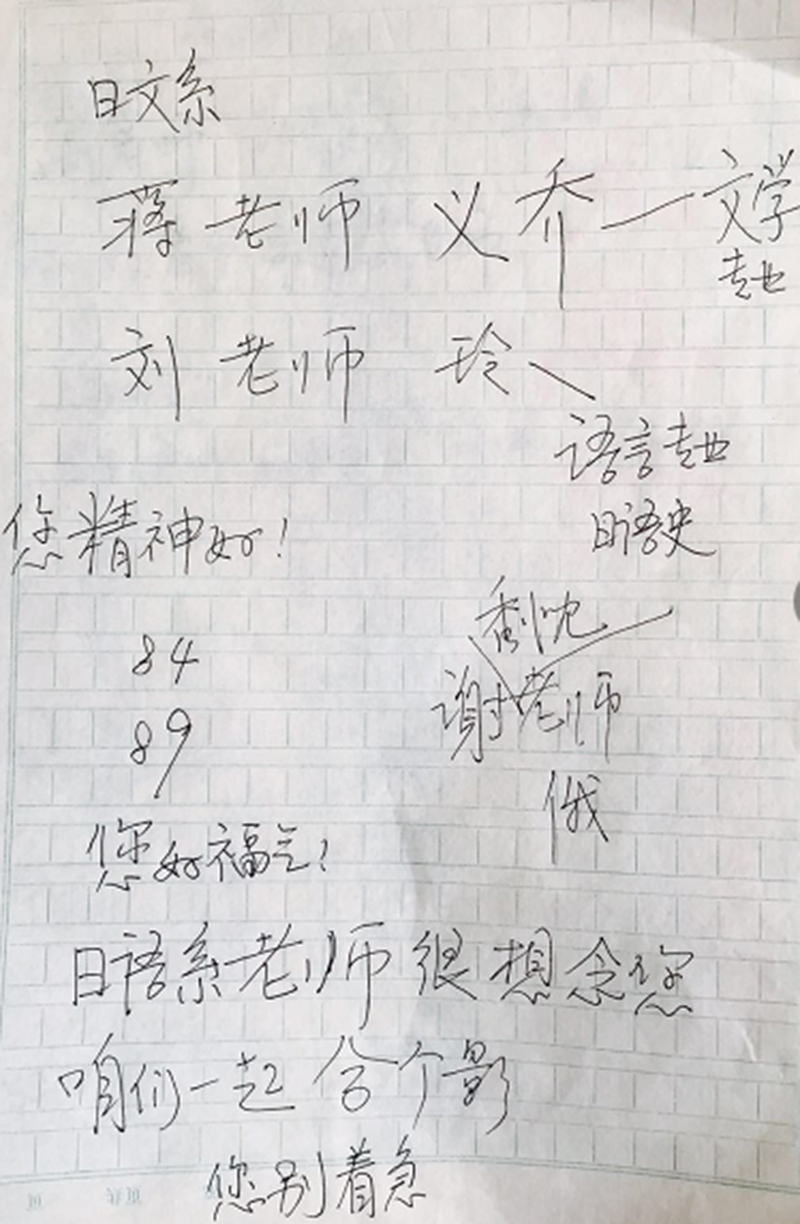 日文系
蒋老师 义乔 — 文学
专业
刘老师 玲
语言专业
日语史
您精神好!
84
89
谢老师
俄
您好福气!
日语系老师很想念您
咱们一起合个影
您别着急